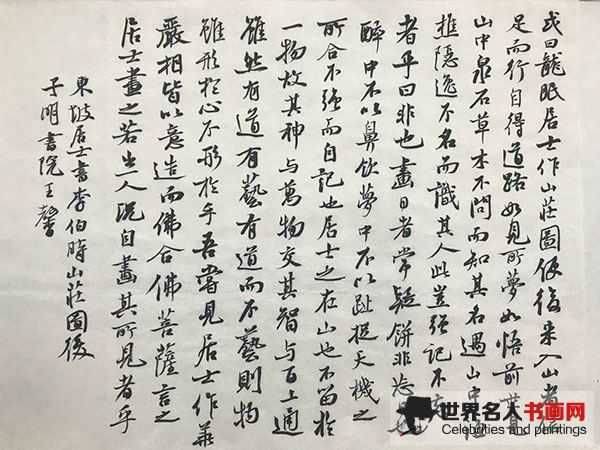 或曰龍眠居士作山莊圖使後来入山者信
足而行自得道路如見所夢如悟前世見
山中泉石草木不問而知其名遇山中漁
樵隱逸不名而識其人此豈強記不
者乎曰非也畫日者常疑餅非忘
醉中不以鼻飲夢中不以趾捉天機之
所合不強而自記也居士之在山也不留於
一物故其神與萬物交其智與百工通
雖然有道有藝有道而不藝則物
雖形於心不形於手吾嘗見居士作華
嚴相皆以意造而佛合佛菩薩言之
居士畫之若出一人況自畫其所見者乎
東坡居士書李伯時山莊圖後
子明書院王馨
世界名人书画网
Celebrities and paintings